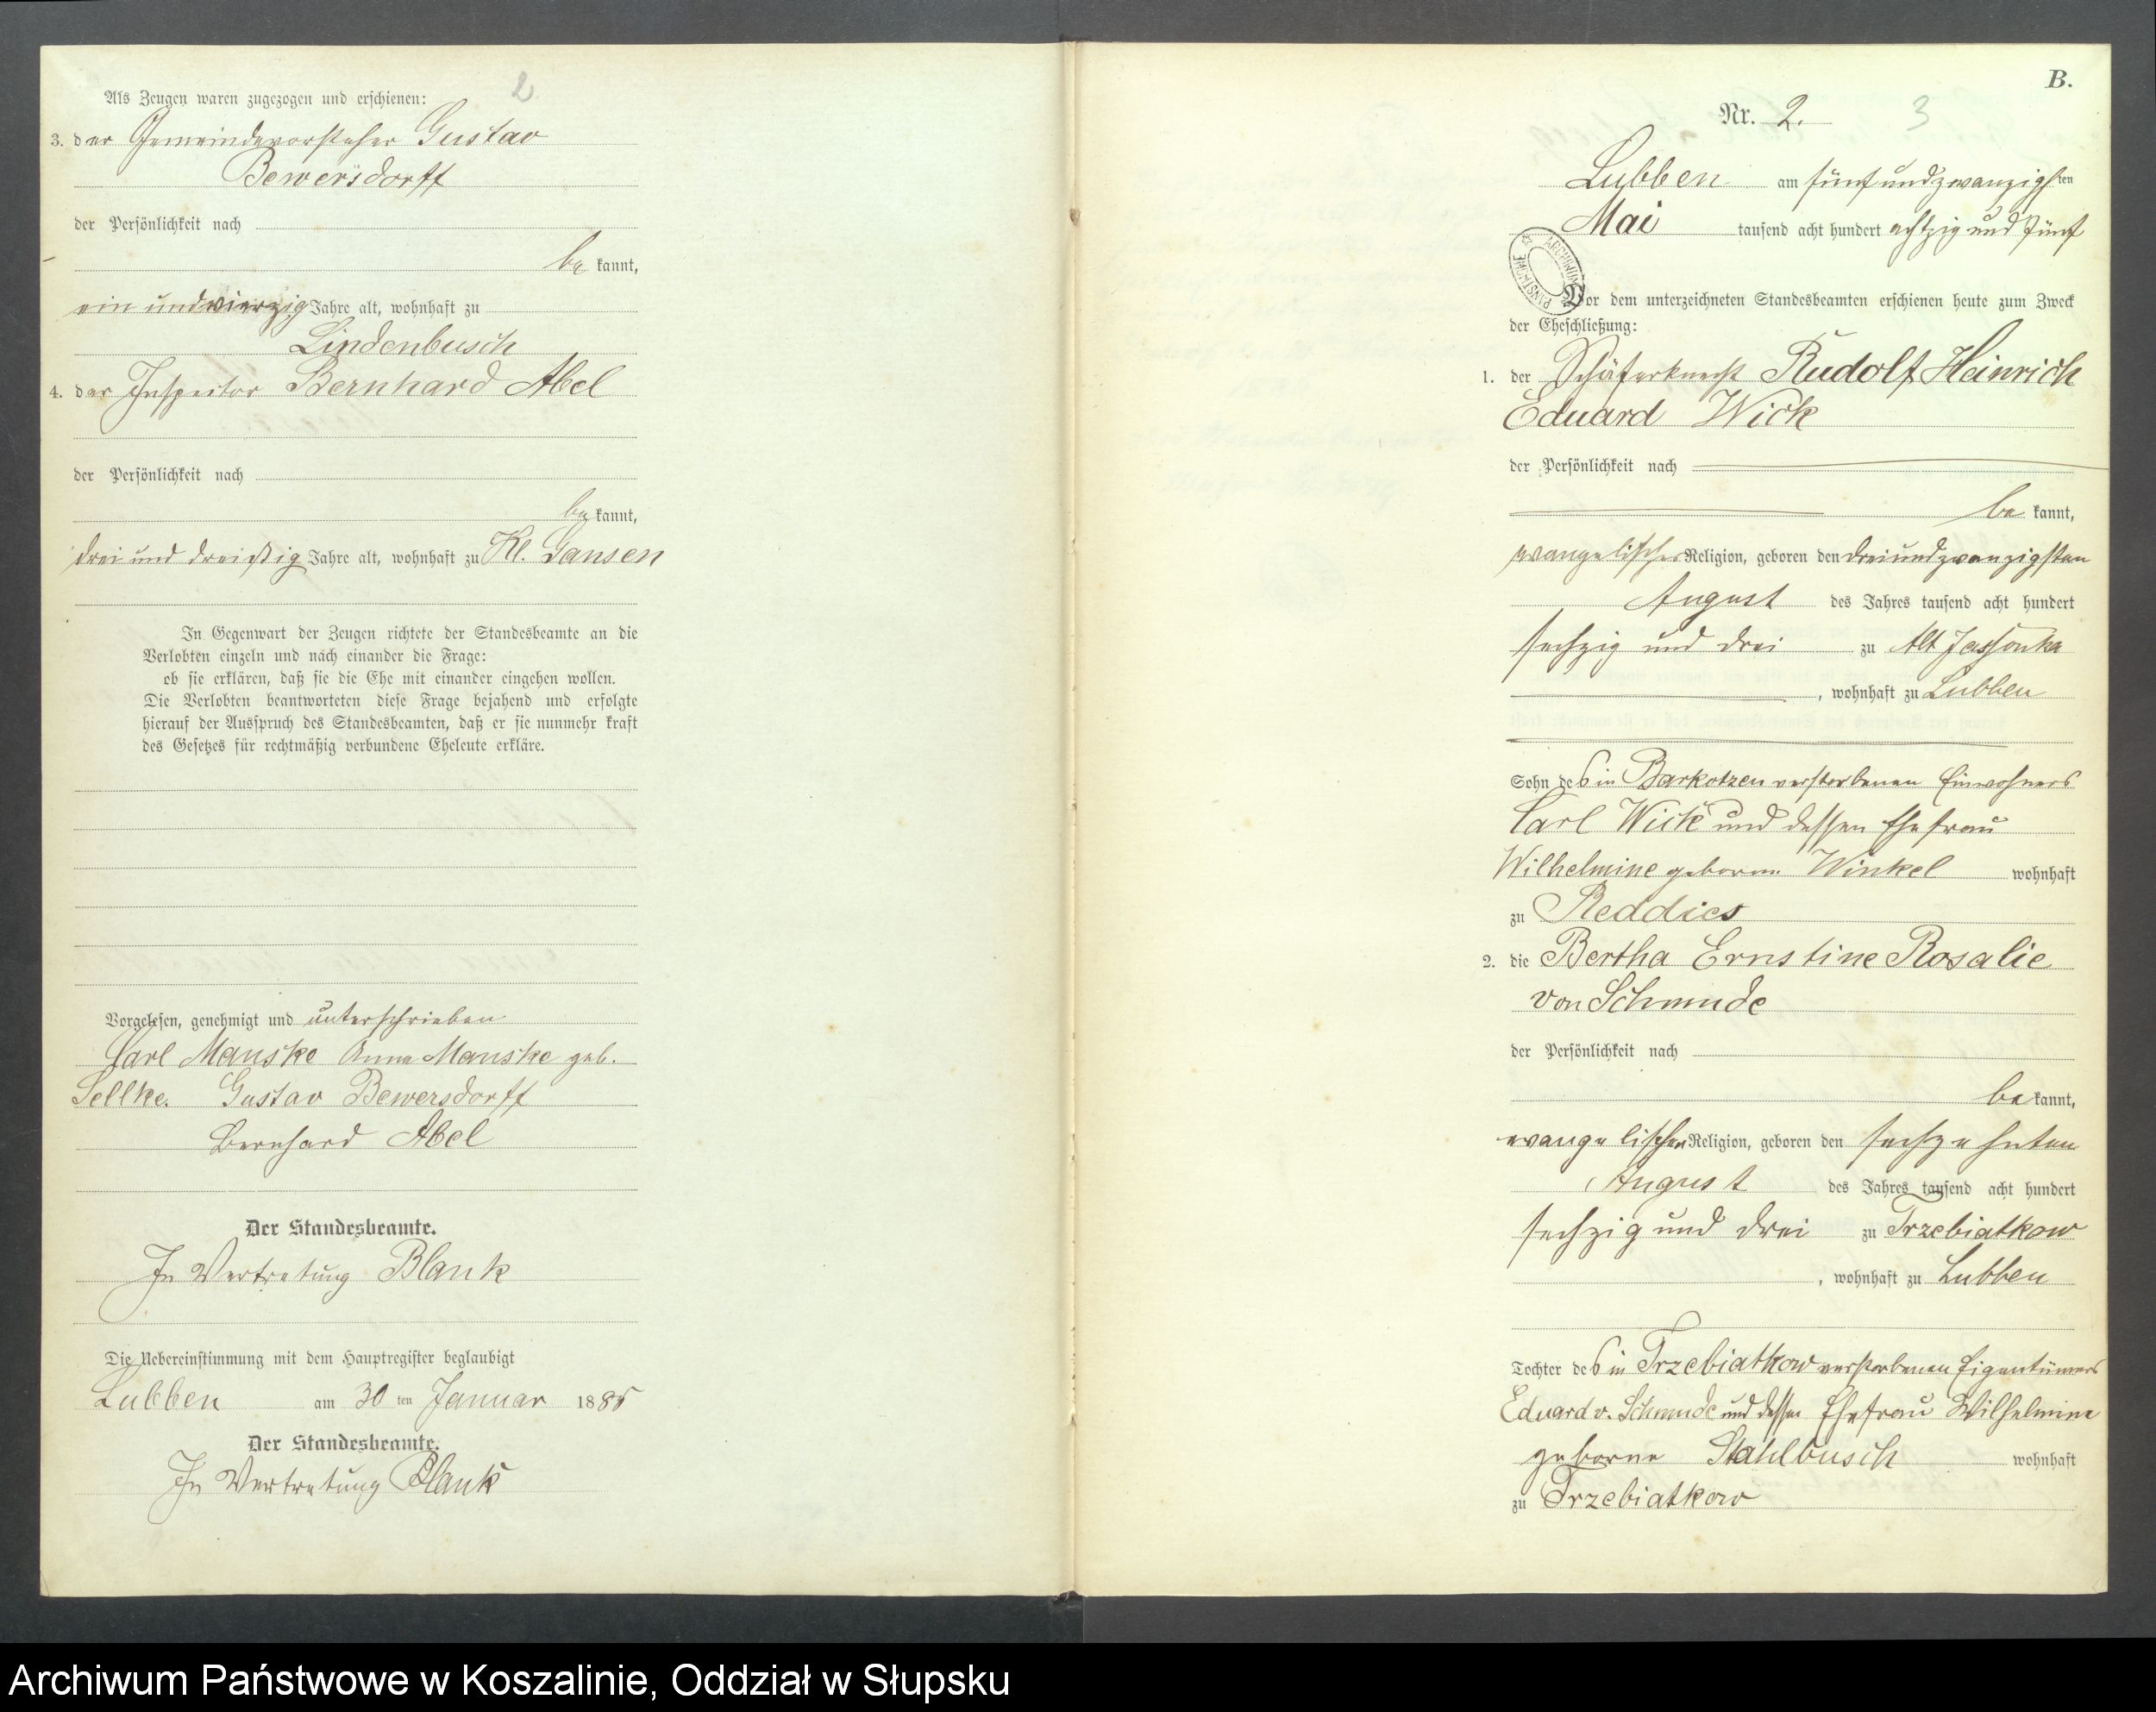 2
Als Zeugen waren zugezogen und erschienen:
3. der Gemeindevorsteher Gustav
Bewersdorff
der Persönlichkeit nach
be kannt,
ein und vierzig Jahre alt, wohnhaft zu
Lindenbusch
4. der Inspector Bernhard Abel
der Persönlichkeit nach
be kannt,
drei und dreißig Jahre alt, wohnhaft zu Kl. Gansen
In Gegenwart der Zeugen richtete der Standesbeamte an die
Verlobten einzeln und nach einander die Frage:
ob sie erklären, daß sie die Ehe mit einander eingehen wollen.
Die Verlobten beantworteten diese Frage bejahend und erfolgte
hierauf der Ausspruch des Standesbeamten, daß er sie nunmehr kraft
des Gesetzes für rechtmäßig verbundene Eheleute erkläre.
Vorgelesen, genehmigt und unterschrieben
Carl Manske Anna Manske geb.
Sellke. Gustav Bewersdorff
Bernhard Abel
Der Standesbeamte.
In Vertretung Blank
Die Uebereinstimmung mit dem Hauptregister beglaubigt
Lubben am 30 ten Januar 1885
Der Standesbeamte.
In Vertretung Blank
B.
Nr. 2. 3
Lubben am fünf und zwanzigsten
Mai tausend acht hundert achtzig und fünf
ARCHIWUM PAŃSTWOWE
Vor dem unterzeichneten Standesbeamten erschienen heute zum Zweck
der Eheschließung:
1. der Schäferknecht Rudolf Heinrich
Eduard Wick
der Persönlichkeit nach
be kannt,
evangelischer Religion, geboren den dreiundzwanzigsten
August des Jahres tausend acht hundert
sechzig und drei zu Alt Jassonka
, wohnhaft zu Lubben
Sohn des in Barkotzen verstorbenen Einwohners
Carl Wick und dessen Ehefrau
Wilhelmine geborne Winkel wohnhaft
zu Reddies
2. die Bertha Ernstine Rosalie
von Schmude
der Persönlichkeit nach
be kannt,
evangelischer Religion, geboren den sechzehnten
August des Jahres tausend acht hundert
sechzig und drei zu Trzebiatkow
, wohnhaft zu Lubben
Tochter des in Trzebiatkow verstorbenen Eigentümers
Eduard v. Schmude und dessen Ehefrau Wilhelmine
geborne Stahlbusch wohnhaft
zu Trzebiatkow
Archiwum Państwowe w Koszalinie, Oddział w Słupsku